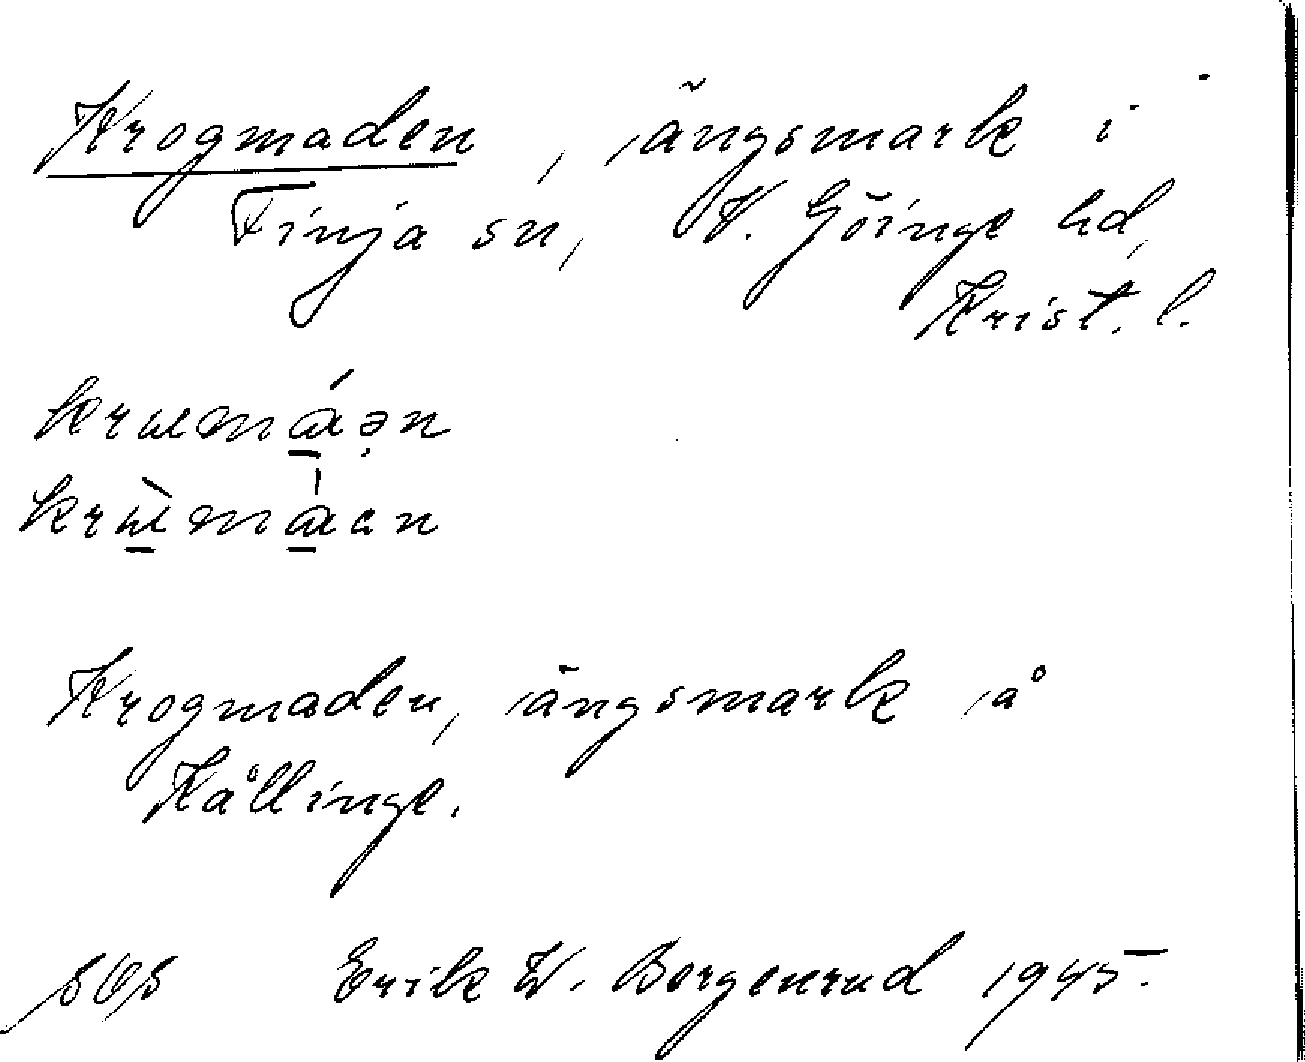 Krogmaden, ängsmark i
Finja sn, V. Göinge hd,
Krist. l.
Krogmaden, ängsmark å
Kållinge.
SOS Erik W. Borgenrud 1945.